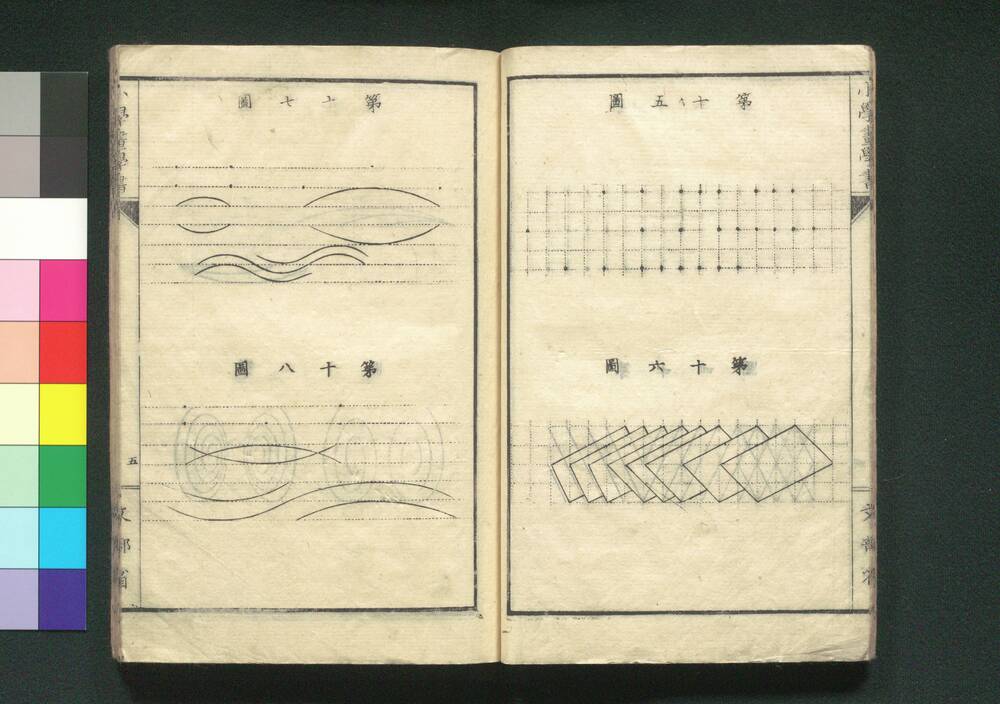 小學畫學書
文部省
第十五圖
第十六圖
第十七圖
第十八圖
小學畫學書
五
文部省